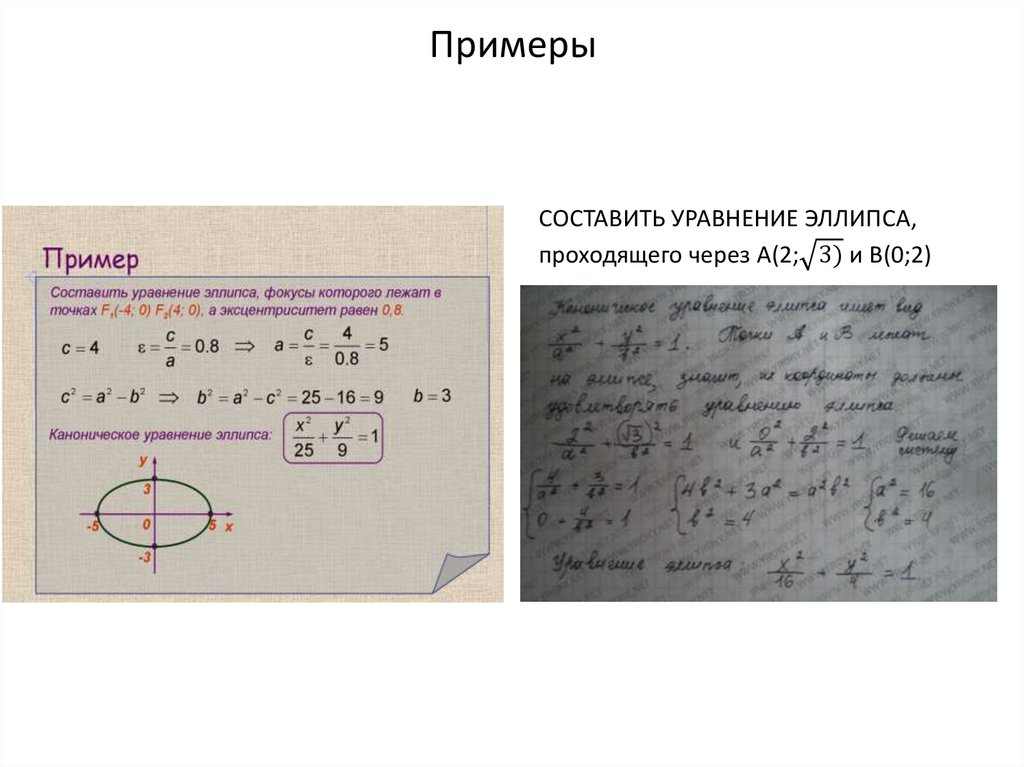 Примеры
Пример
Составить уравнение эллипса, фокусы которого лежат в
точках F₁(-4; 0) F₂(4; 0), а эксцентриситет равен 0,8.
c = 4 ε = c/a = 0.8 ⇒ a = c/ε = 4/0.8 = 5
c² = a² – b² ⇒ b² = a² – c² = 25 – 16 = 9 b = 3
Каноническое уравнение эллипса: x²/25 + y²/9 = 1
y
3
-5 0 5 x
-3
СОСТАВИТЬ УРАВНЕНИЕ ЭЛЛИПСА,
проходящего через A(2;√3) и B(0;2)
Каноническое уравнение элипса имеет вид
x²/a² + y²/b² = 1. Точки A и B лежат
на элипсе, значит, их координаты должны
удовлетворять уравнению элипса
2²/a² + (√3)²/b² = 1 и 0²/a² + 2²/b² = 1 Решаем
систему
{4/a² + 3/b² = 1 {4b² + 3a² = a²b² {a² = 16
0 + 4/b² = 1 b² = 4 b² = 4
Уравнение элипса x²/16 + y²/4 = 1.